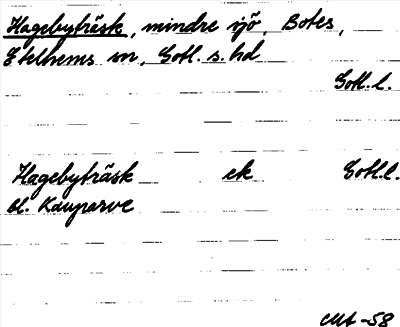 Hagebyträsk, mindre sjö, Botes,
Etelhems sn, Gotl. s. hd
Gotl. l.
Hagebyträsk ek Gotl. l.
bl. Kauparve
-58